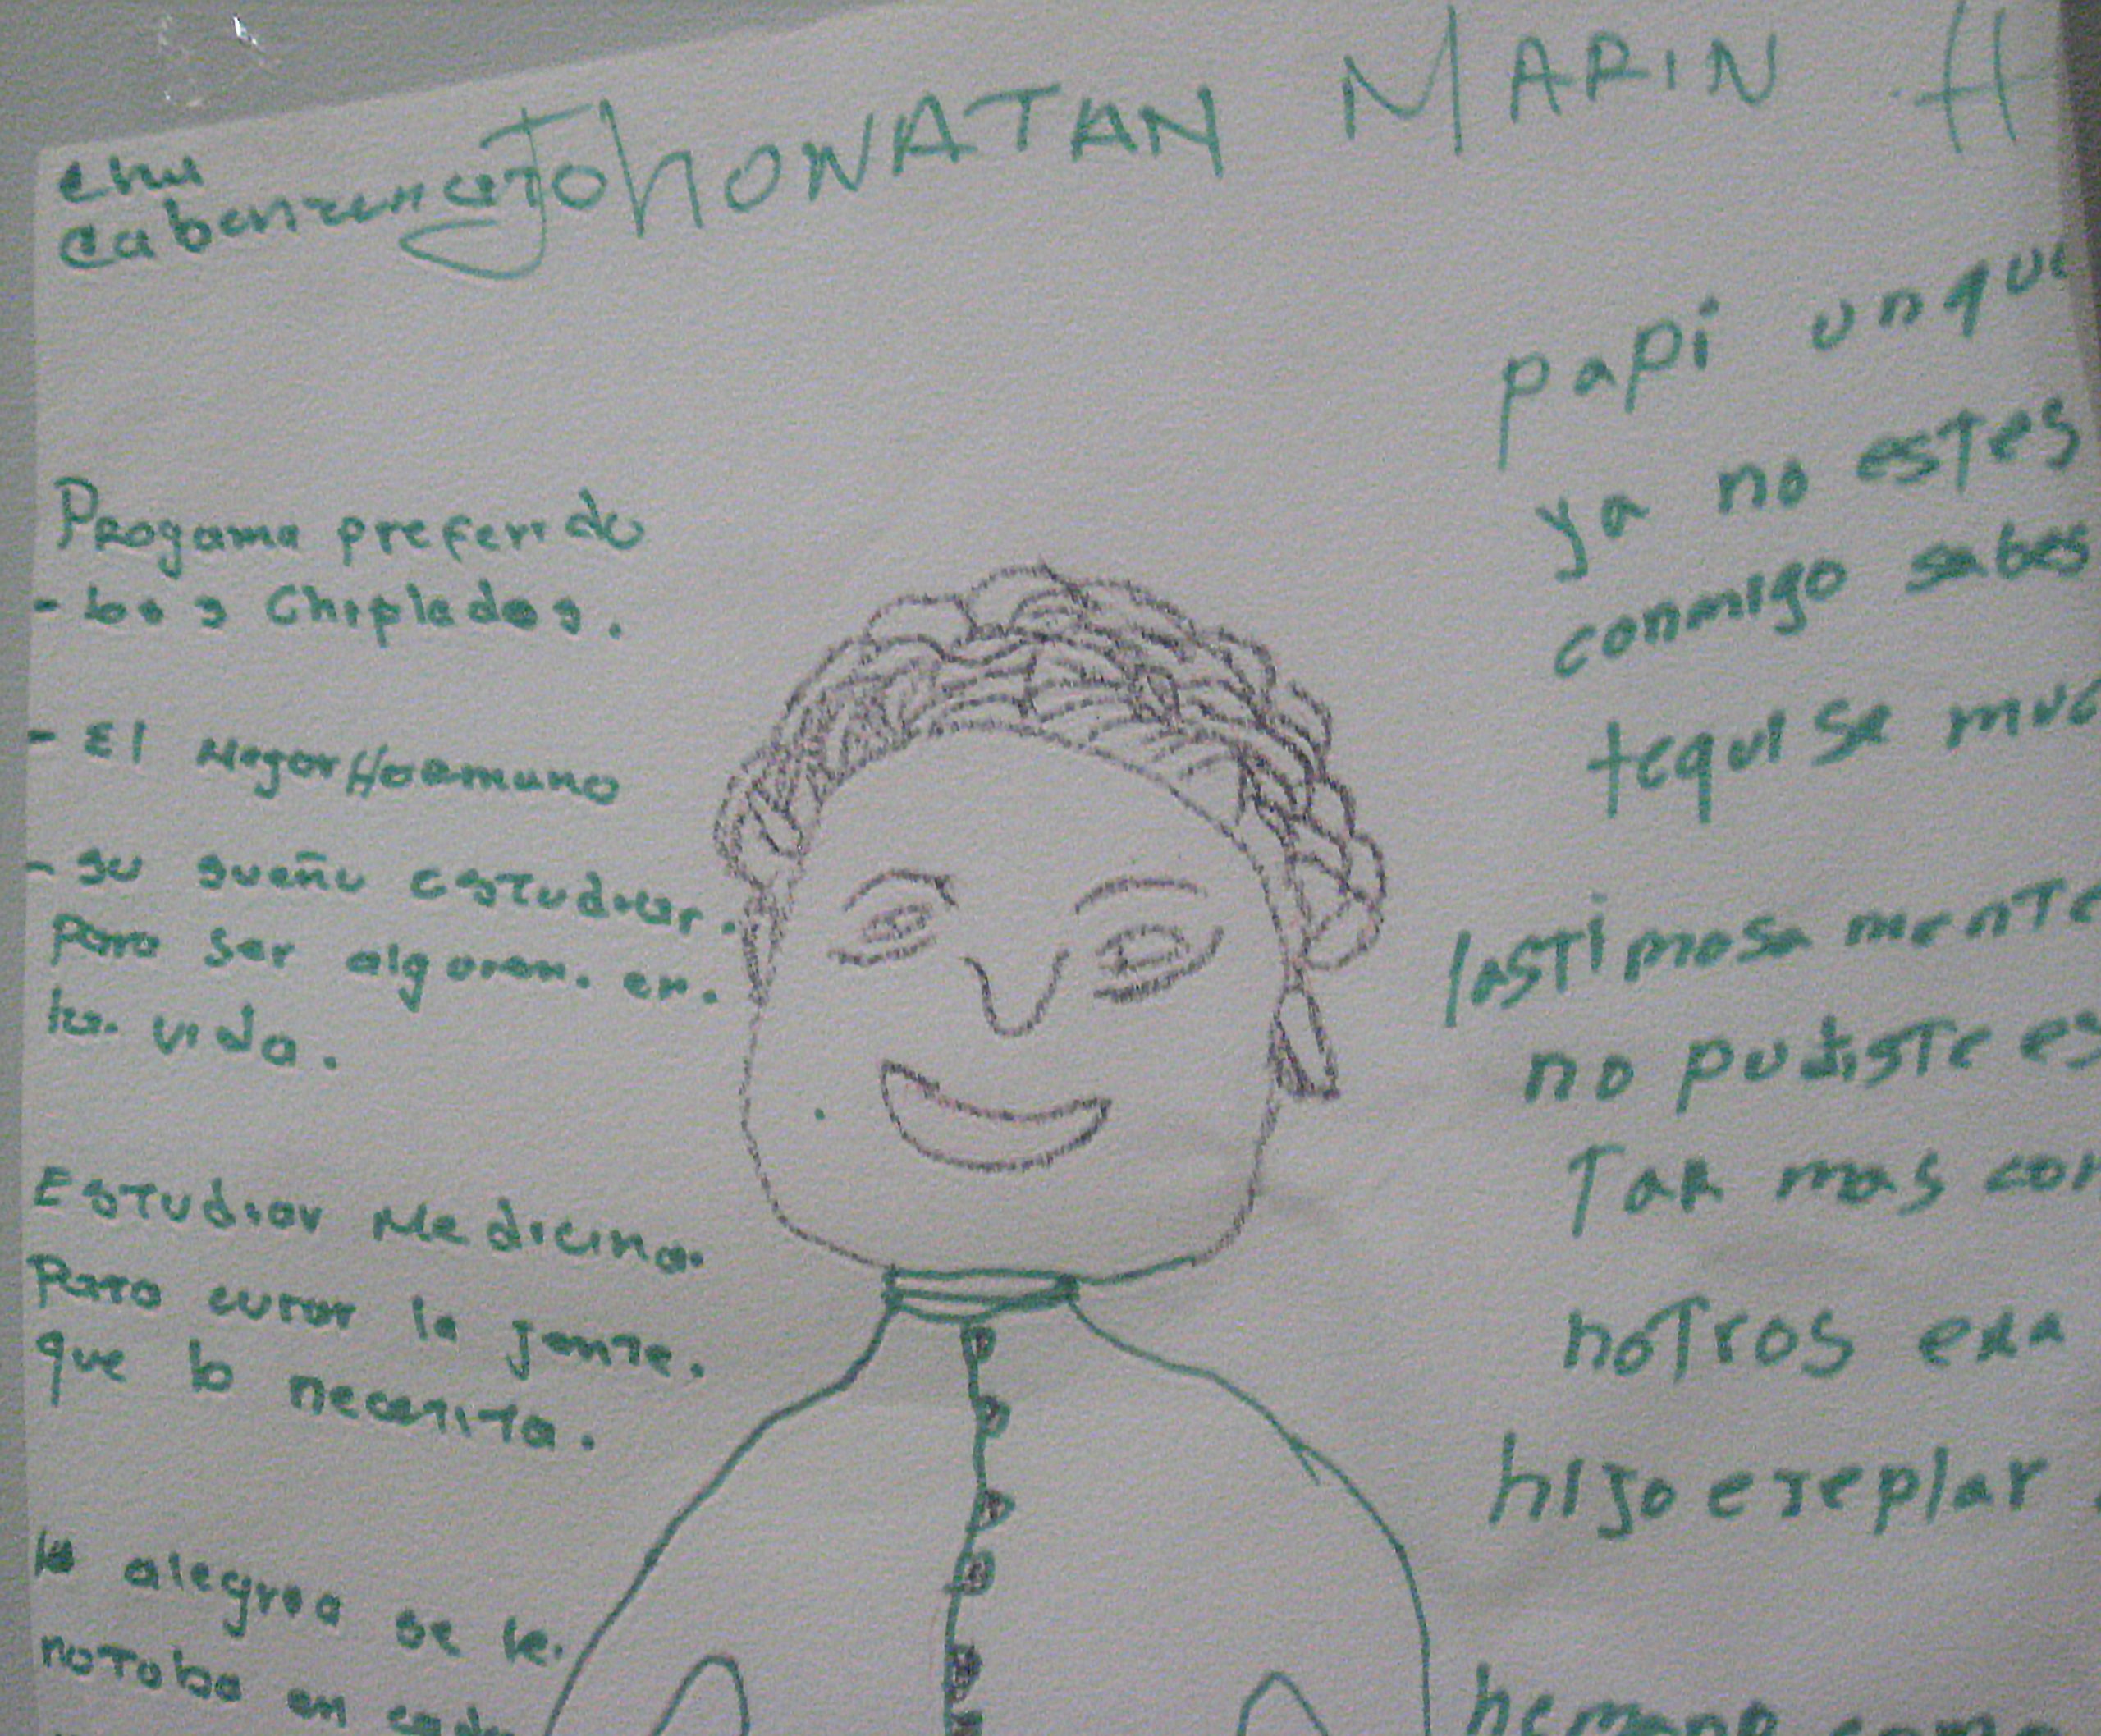 JhoNATAN MARIN H
Progama preferido
- los 3 Chiplados.
- El MejorHoermano
- su sueño estudiar.
Para ser alguien. en.
la. vida.
Estudiar Medicina.
Para curar la jente.
que lo necesita.
la alegria se le.
notaba en cada
papi unque
ya no estes
conmigo sabes
tequise muc
lastimosa mente
no pudiste es
Tar mas con
notros era
hijo ejeplar
hemano como